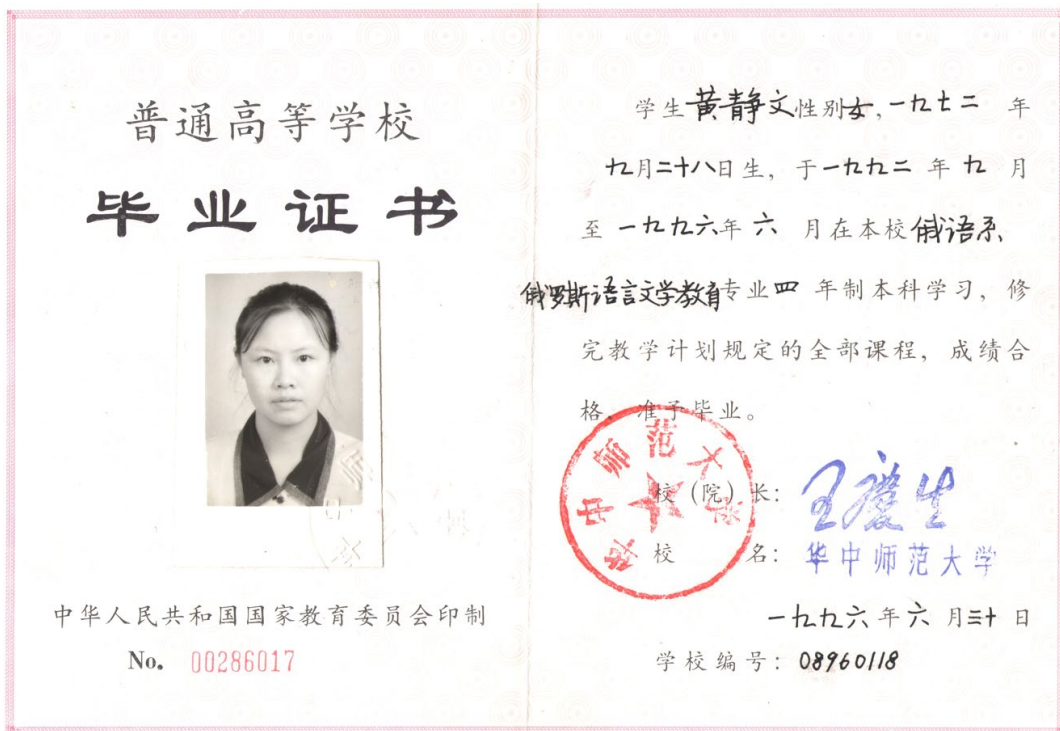 普通高等学校
毕业证书
中华人民共和国国家教育委员会印制
No. 00286017
学生黄静文性别女,一九七二 年
九月二十八日生, 于一九九二 年 九 月
至 一九九六年 六 月在本校俄语系、
俄罗斯语言文学教育专业四 年制本科学习, 修
完教学计划规定的全部课程, 成绩合
格, 准予毕业。
华中师范大学
校(院)长: 王庆生
校 名: 华中师范大学
一九九六年六 月三十 日
学校编号: 08960118